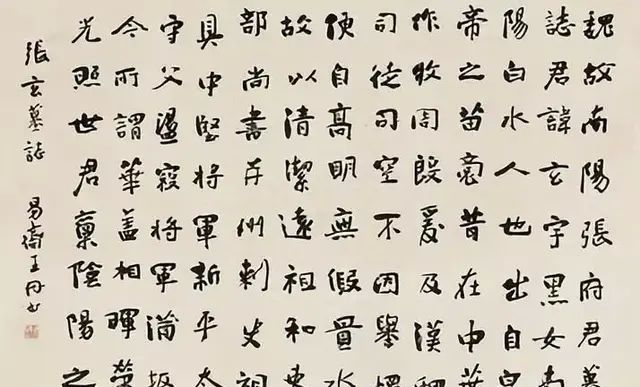 魏故南陽張府君墓
誌君諱玄字黑女南
陽白水人也出自皇
帝之苗裔昔在中葉
作牧周殷爰及漢
司徒司空不因舉
便自高明無假置水
故以清潔遠祖和吏
部尚書并州刺史祖
具中堅將軍新平太
守父盪寇將軍蒲坂
今所謂華蓋相暉榮
光照世君稟陰陽之
張玄墓誌 易齋王丹书